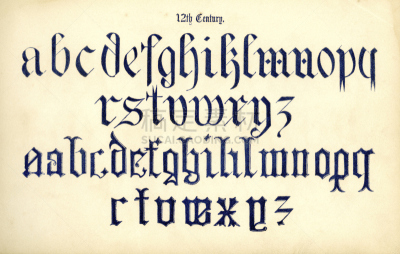 12th Century.
abcdefghiklmnopq
rstvwxyz
aabcdefghiklmnopq
rstvwxyz